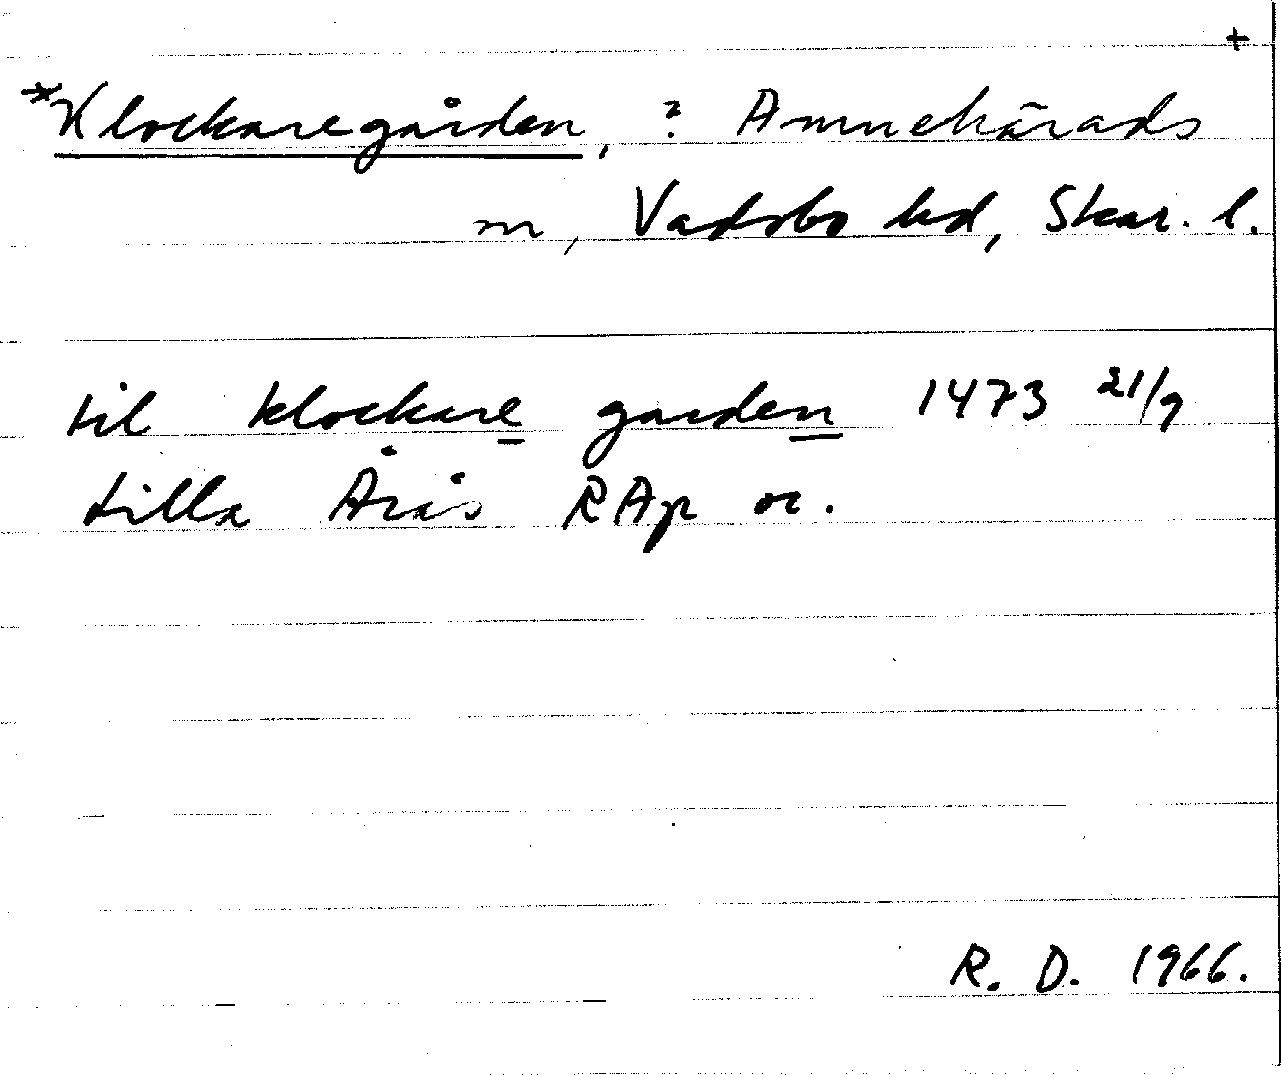 +
*Klockaregården, ? Amnehärads
sn, Vadsbo hd, Skar. l.
til klockare garden 1473 21/9
Lilla Årås RAp or.
R. D. 1966.